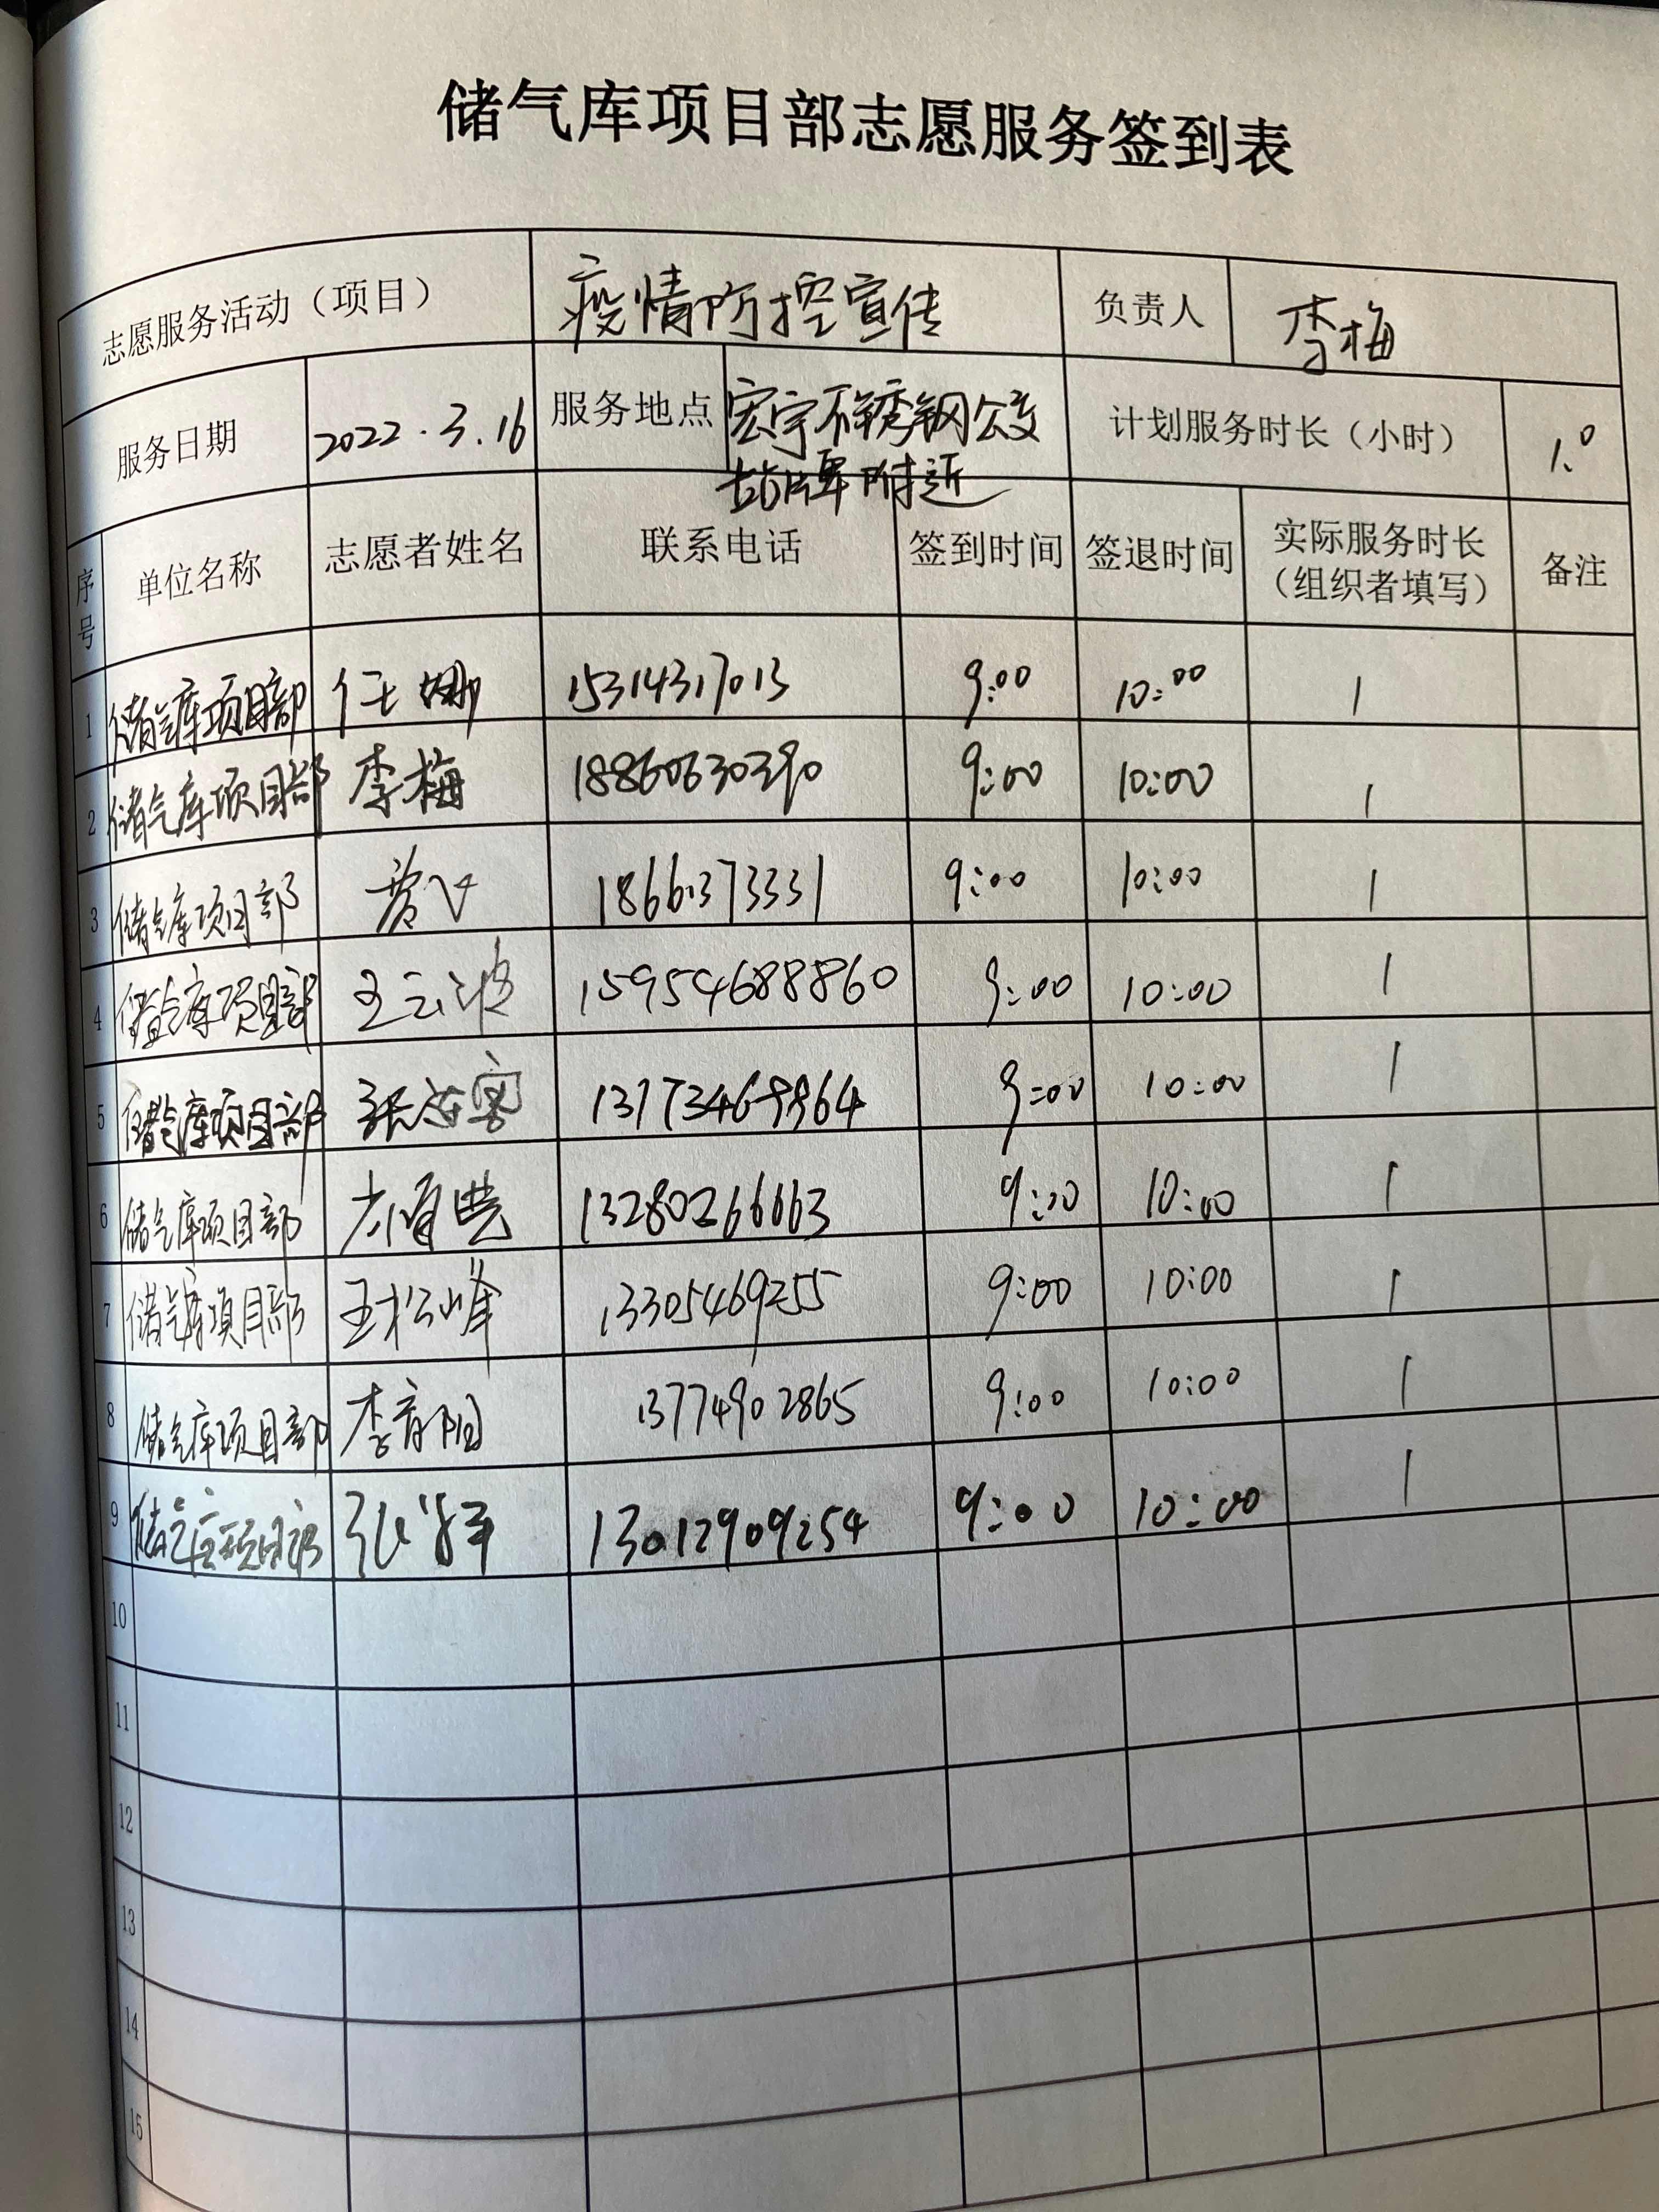 储气库项目部志愿服务签到表
志愿服务活动（项目） 疫情防控宣传 负责人 李梅
服务日期 2022.3.16 服务地点 宏宇不锈钢公交站牌附近 计划服务时长（小时） 1.0
序号 单位名称 志愿者姓名 联系电话 签到时间 签退时间 实际服务时长（组织者填写） 备注
1 储气库项目部 任娜 15314317013 9:00 10:00 1
2 储气库项目部 李梅 18860630390 9:00 10:00 1
3 储气库项目部 9:00 10:00 1
4 储气库项目部 王云波 15954688860 9:00 10:00 1
5 储气库项目部 9:00 10:00 1
6 储气库项目部 13280266663 9:00 10:00 1
7 储气库项目部 王松峰 13305469255 9:00 10:00 1
8 储气库项目部 李育阳 13774902865 9:00 10:00 1
9 储气库项目部 13012909254 9:00 10:00 1
10
11
12
13
14
15